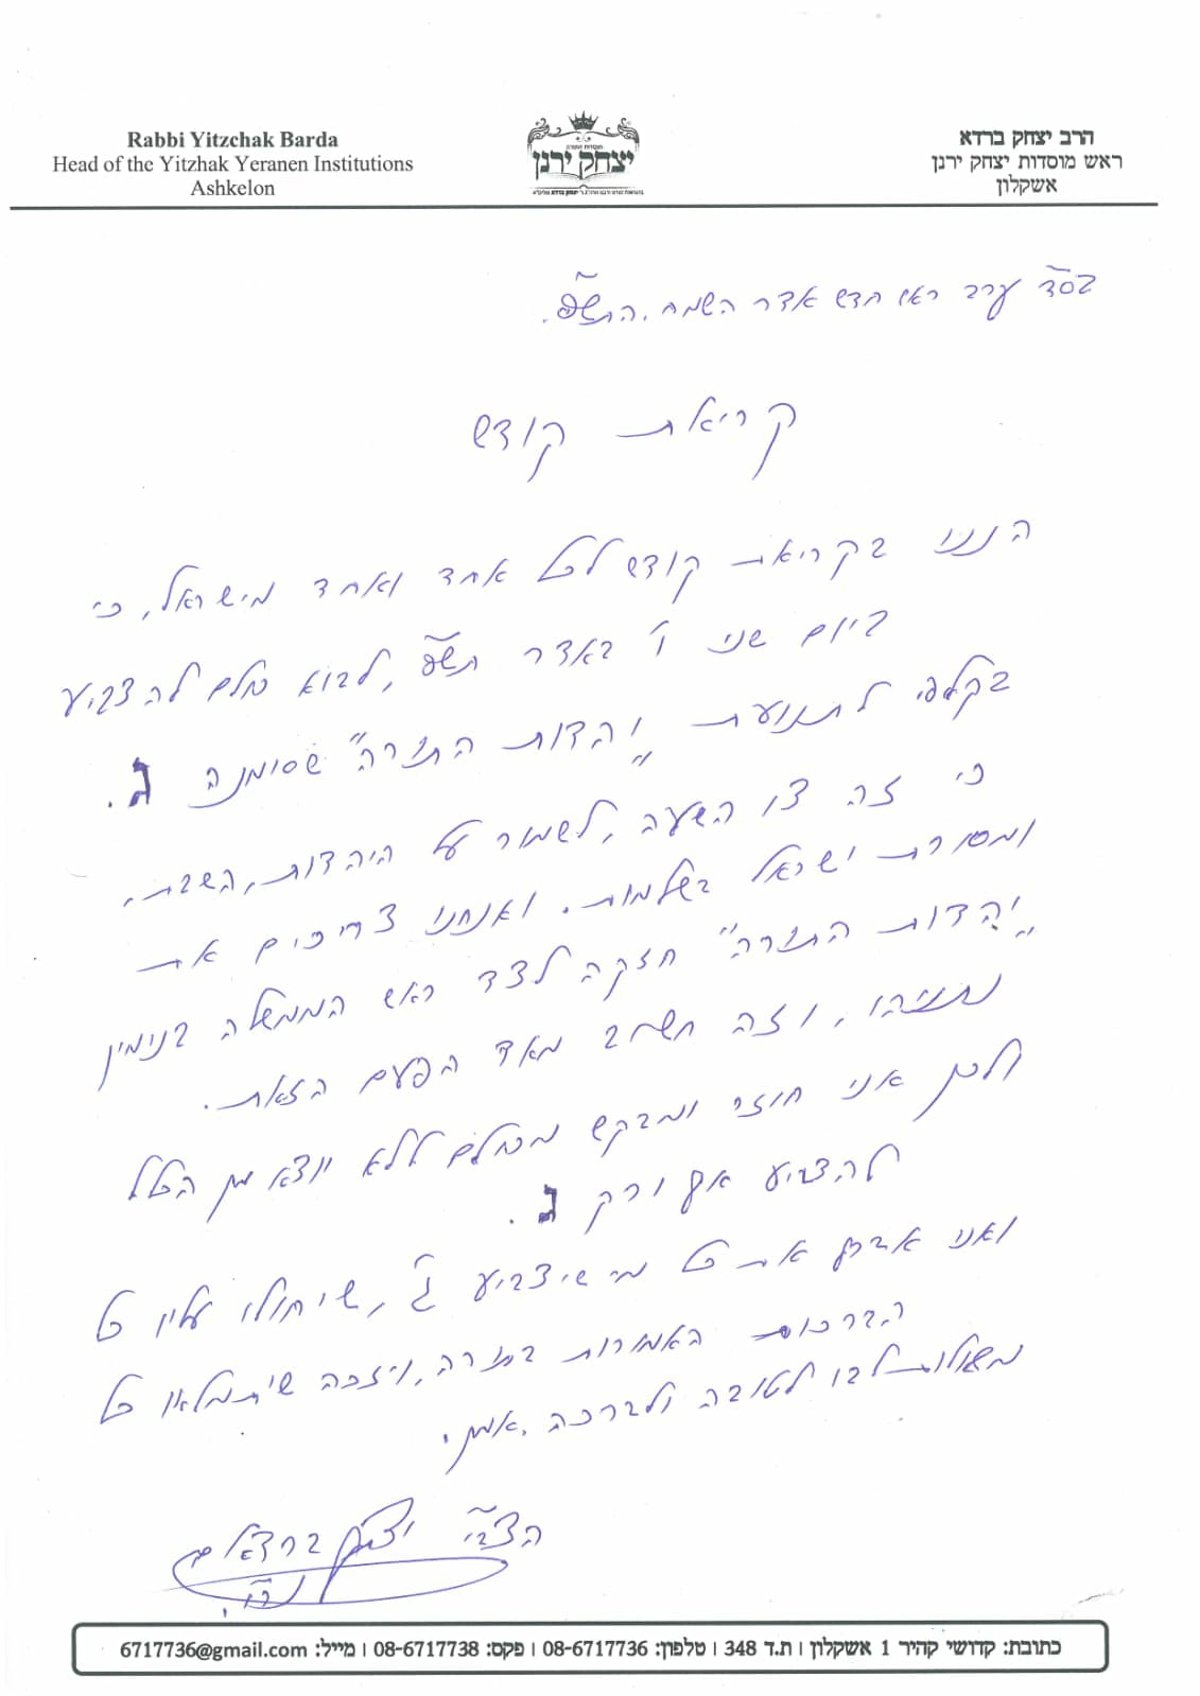 Rabbi Yitzchak Barda
Head of the Yitzhak Yeranen Institutions
Ashkelon
יצחק ירנן
הרב יצחק ברדא
ראש מוסדות יצחק ירנן
אשקלון
בס"ד ערב ראש חדש אדר השמח, התש"פ.
קריאת קודש
הננו בקריאת קודש לכל אחד ואחד מישראל, כי
ביום שני ו' באדר תש"פ, לבוא כולם להצביע
בקלפי לתנועת "יהדות התורה" שסימנה ג.
כי זה צו השעה, לשמור על היהדות, השבת,
ומסורת ישראל בשלמות. ואנחנו צריכים את
"יהדות התורה" חזקה לצד ראש הממשלה בנימין
נתניהו, וזה חשוב מאד הפעם הזאת.
ולכן אני חוזר ומבקש מכולם ללא יוצא מן הכלל
להצביע אך ורק ג.
ואני אברך את כל מי שיצביע ג', שיחולו עליו כל
הברכות האמורות בתורה, ויזכה שיתמלאו כל
משאלות לבו לטובה ולברכה, אמן.
הצב"י יצחק ברדא
כתובת: קדושי קהיר 1 אשקלון | ת.ד 348 | טלפון: 08-6717736 | פקס: 08-6717738 | מייל: 6717736@gmail.com